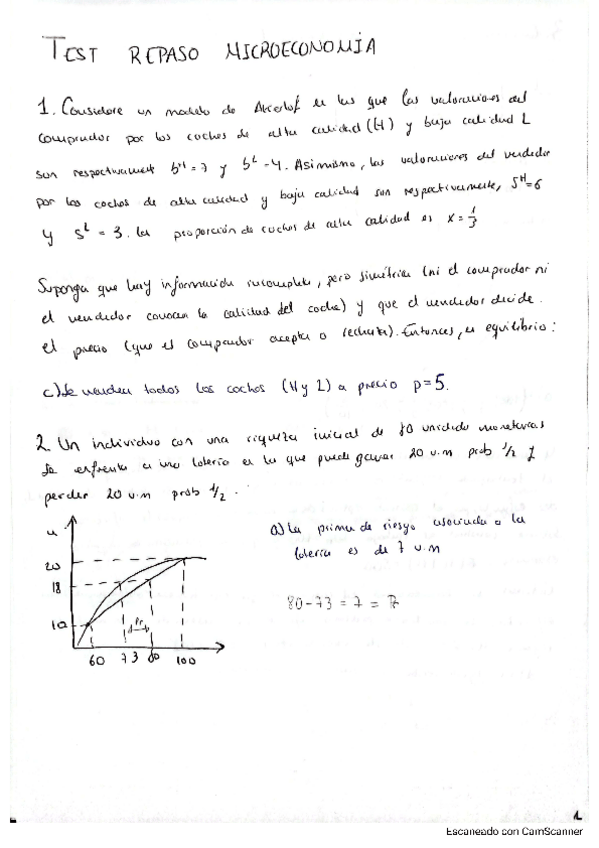 TEST REPASO MICROECONOMÍA
1. Considere un modelo de Akerlof en los que las valoraciones del
comprador por los coches de alta calidad (H) y baja calidad L
son respectivamente bᴴ=7 y bᴸ=4. Asimismo, las valoraciones del vendedor
por los coches de alta calidad y baja calidad son respectivamente, Sᴴ=6
y Sᴸ = 3. La proporción de coches de alta calidad es x = 1/3
Suponga que hay información incompleta, pero simétrica (ni el comprador ni
el vendedor conocen la calidad del coche) y que el vendedor decide
el precio (que el comprador acepta o rechaza). Entonces, en equilibrio:
c) Se venden todos los coches (H y L) a precio p=5.
2. Un individuo con una riqueza inicial de 80 unidades monetarias
se enfrenta a una lotería en la que puede ganar 20 u.m prob 1/2 y
perder 20 u.m prob 1/2.
a) La prima de riesgo asociada a la
lotería es de 7 u.m
80-73 = 7 =
u
20
18
10
Pr
60 73 80 100
1
Escaneado con CamScanner